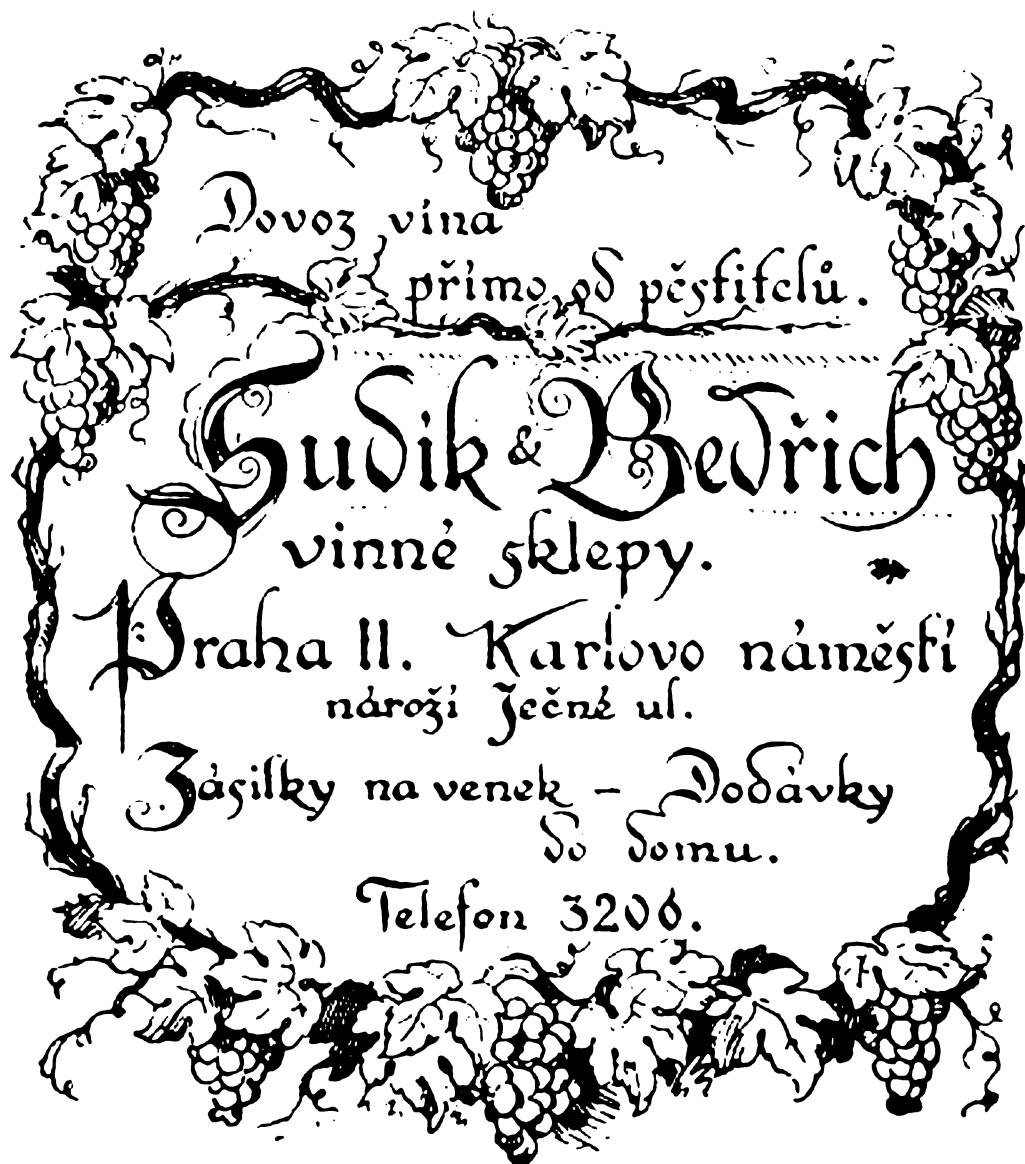 Dovoz vína
přímo od pěstitelů.
Sudík & Bedřich
vinné sklepy.
Praha II. Karlovo náměstí
nároží Ječné ul.
Zásilky na venek – Dodávky
do domu.
Telefon 3206.